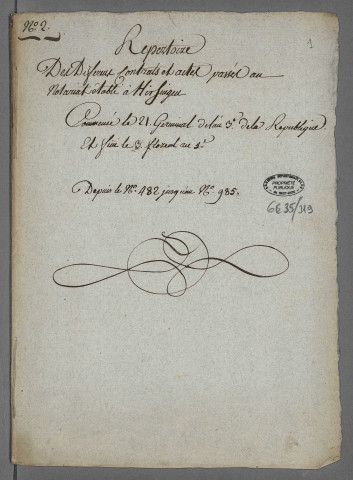 N.° 2.
1
Repertoire
Des Differens Contrats et actes passés au
Notariat établi à Hirsingue
Commencé le 21. Germinal de l'an 3.e de la Republique
Et fini le 3. floreal an 5.e
Depuis le N.° 482 jusqu'au N.° 985.
PROPRIÉTÉ
PUBLIQUE
6E35/319